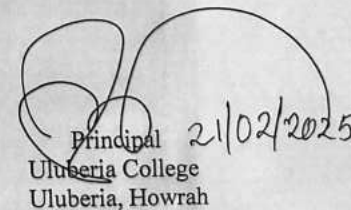 Principal 21/02/2025
Uluberia College
Uluberia, Howrah